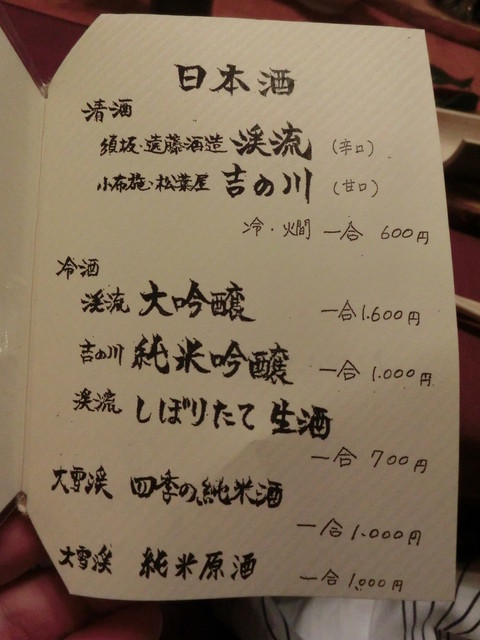 日本酒
清酒
須坂・遠藤酒造 渓流 (辛口)
小布施・松葉屋 吉の川 (甘口)
冷・燗 一合 600円
冷酒
渓流 大吟醸 一合 1.600円
吉の川 純米吟醸 一合 1.000円
渓流 しぼりたて 生酒
一合 700円
大雪渓 四季の純米酒
一合 1.000円
大雪渓 純米原酒 一合 1.000円